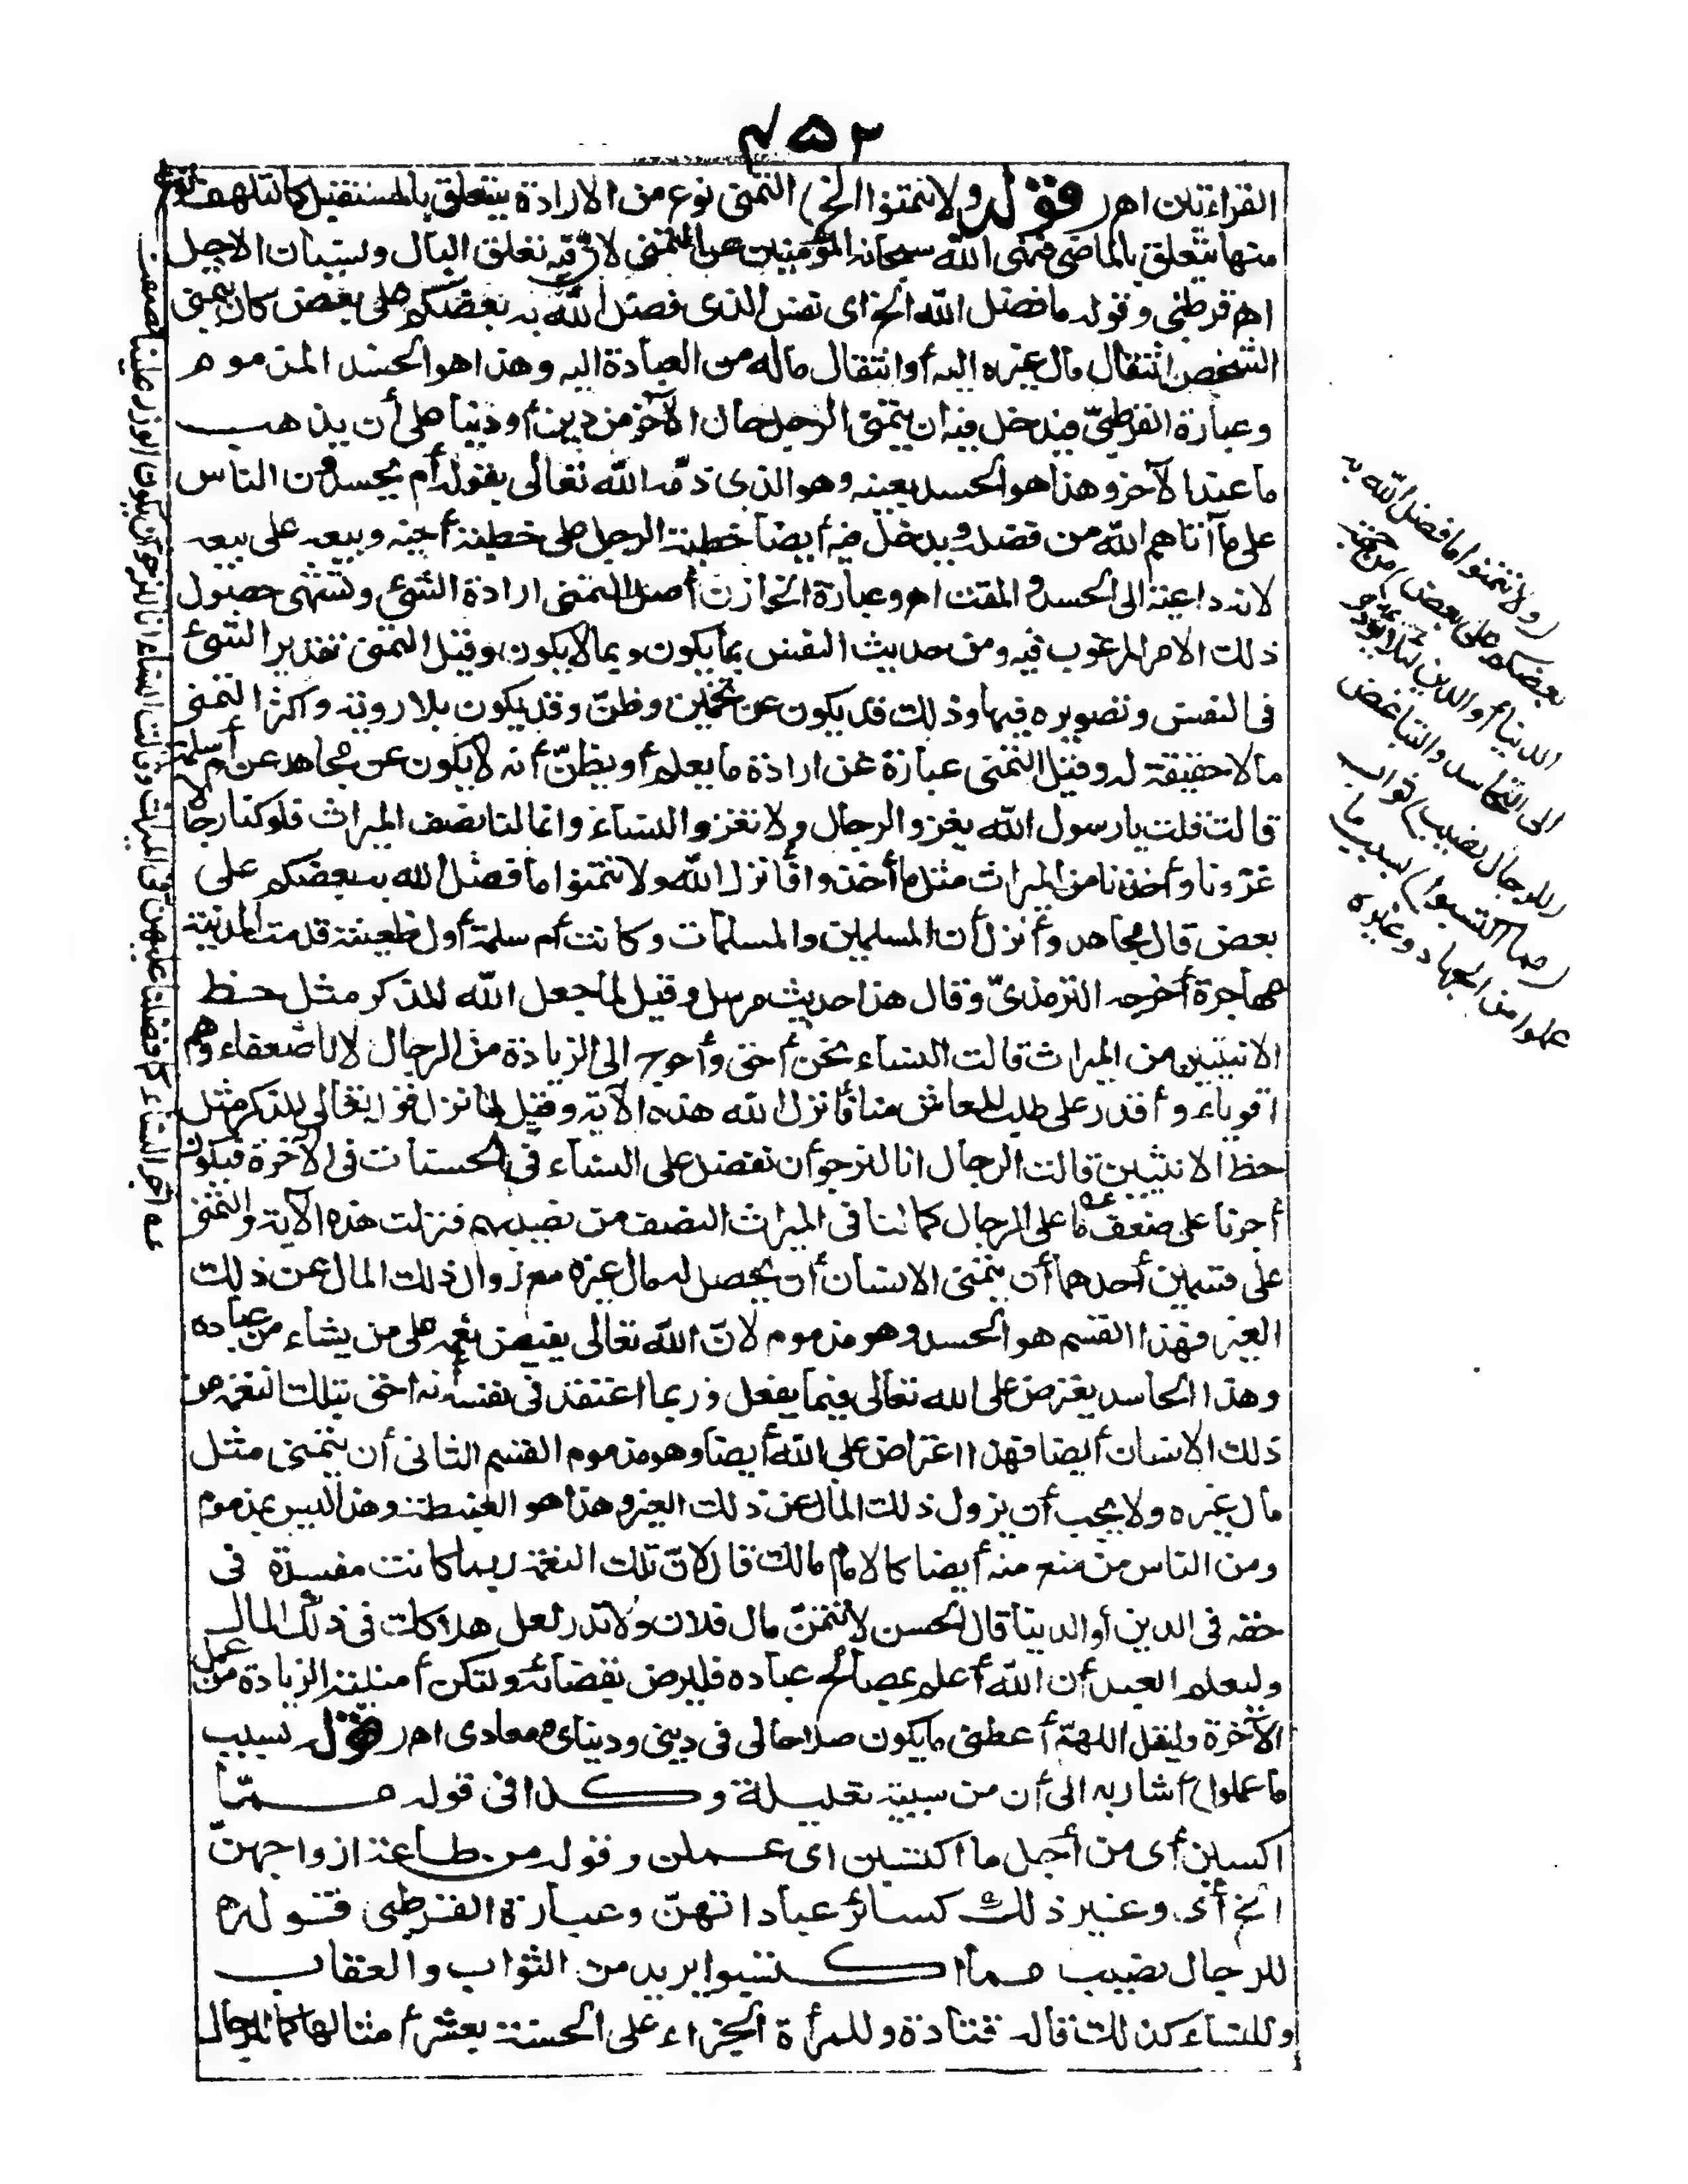 ٤٥٢
القراءتان اهر قوله ولا تتمنوا الخ) التمنى نوع من الارادة يتعلق بالمستقبل كالتلهف نوع
منها يتعلق بالماضى فنهى الله سبحانه المؤمنين عن التمنى لان فيه تعلق البال ونسيان الاجل
اهر قرطبى وقوله ما فضل الله الخ اى نفس الذى فضل الله به بعضكم على بعض كان يتمنى
الشخص انتقال مال غيره اليه أو انتقال ماله من العبادة اليه وهذا هو الحسد المذموم
وعبارة القرطبىّ فيدخل فيه ان يتمنى الرجل حال الآخر من دين أو دنيا على أن يذهب
ما عند الآخر وهذا هو الحسد بعينه وهو الذى ذمّه الله تعالى بقوله أم يحسدون الناس
على ما آتاهم الله من فضله ويدخل فيه أيضا خطبة الرجل على خطبة أخيه وبيعه على بيعه
لانه داعية الى الحسد والمقت اهر وعبارة الخازن أصل التمنى ارادة الشئ وتشهى حصول
ذلك الامر المرغوب فيه ومن حديث النفس بما يكون وبما لا يكون وقيل التمنى تقدير الشئ
فى النفس وتصويره فيها وذلك قد يكون عن تخمين وظنّ وقد يكون بلا روية وأكثر التمنى
ما لا حقيقة له وقيل التمنى عبارة عن ارادة ما يعلم أو يظنّ أنه لا يكون عن مجاهد عن أم سلمة
قالت قلت يا رسول الله يغزو الرجال ولا تغزو النساء وانما لنا نصف الميراث فلو كنا رجالا
غزونا وأخذنا من الميراث مثل ما أخذوا فأنزل الله ولا تتمنوا ما فضل الله به بعضكم على
بعض قال مجاهد وأنزل أن المسلمين والمسلمات وكانت أم سلمة أول ظعينة قدمت المدينة
مهاجرة أخرجه الترمذىّ وقال هذا حديث مرسل وقيل لما جعل الله للذكر مثل حظ
الانثيين من الميراث قالت النساء نحن أحق وأحوج الى الزيادة من الرجال لانا ضعفاء وهم
أقوياء وأقدر على طلب المعاش منا فأنزل الله هذه الآية وقيل لما نزل قوله تعالى للذكر مثل
حظ الانثيين قالت الرجال انا لنرجو أن نفضل على النساء فى الحسنات فى الآخرة فيكون
أجرنا على ضعف ما على الرجال كما لنا فى الميراث النصف من نصيبهم فنزلت هذه الآية والتمنى
على قسمين أحدهما أن يتمنى الانسان أن يحصل له مال غيره مع زوال ذلك المال عن ذلك
الغير فهذا القسم هو الحسد وهو مذموم لانّ الله تعالى يفيض نعمه على من يشاء من عباده
وهذا الحاسد يعترض على الله تعالى فيما يفعل وربما اعتقد فى نفسه أنه احق بتلك النعم من
ذلك الانسان أيضا فهذا اعتراض على الله أيضا وهو مذموم القسم الثانى أن يتمنى مثل
مال غيره ولا يحب أن يزول ذلك المال عن ذلك الغير وهذا هو الغبطة وهذا ليس بمذموم
ومن الناس من منع منه أيضا كالامام مالك قال لانّ تلك النعمة ربما كانت مفسدة فى
حقه فى الدين أو الدنيا قال الحسن لا تتمنّ مال فلان ولا تدر لعل هلاكك فى ذلك المال
وليعلم العبد أن الله أعلم بمصالح عباده فليرض بقضائه ولتكن أمنيته الزيادة من عمل
الآخرة وليقل اللهمّ أعطنى ما يكون صلاحا لى فى دينى ودنياى ومعادى اهر قوله بسبب
ما عملوا) أشار به الى أن من سببية تعليلة وكذا فى قوله ممّا
اكتسبن أى من أجل ما اكتسبن اى عملن وقوله من طاعة ازواجهنّ
الخ أى وغير ذلك كسائر عباداتهنّ وعبارة القرطبى قوله
للرجال نصيب مما اكتسبوا يريد من الثواب والعقاب
وللنساء كذلك قاله قتادة وللمرأة الجزاء على الحسنة بعشر أمثالها كما للرجال
(ولا تتمنوا ما فضل الله به
بعضكم على بعض) من جهة
الدنيا أو الدين لئلا يؤدى
الى التحاسد والتباغض
(للرجال نصيب) ثواب
(مما اكتسبوا) بسبب ما
عملوا من الجهاد وغيره
عه أجر النساء كما فضلنا عليهن فى الميراث وقالت النساء انا لنرجو أن يكون الوزر علينا نصف